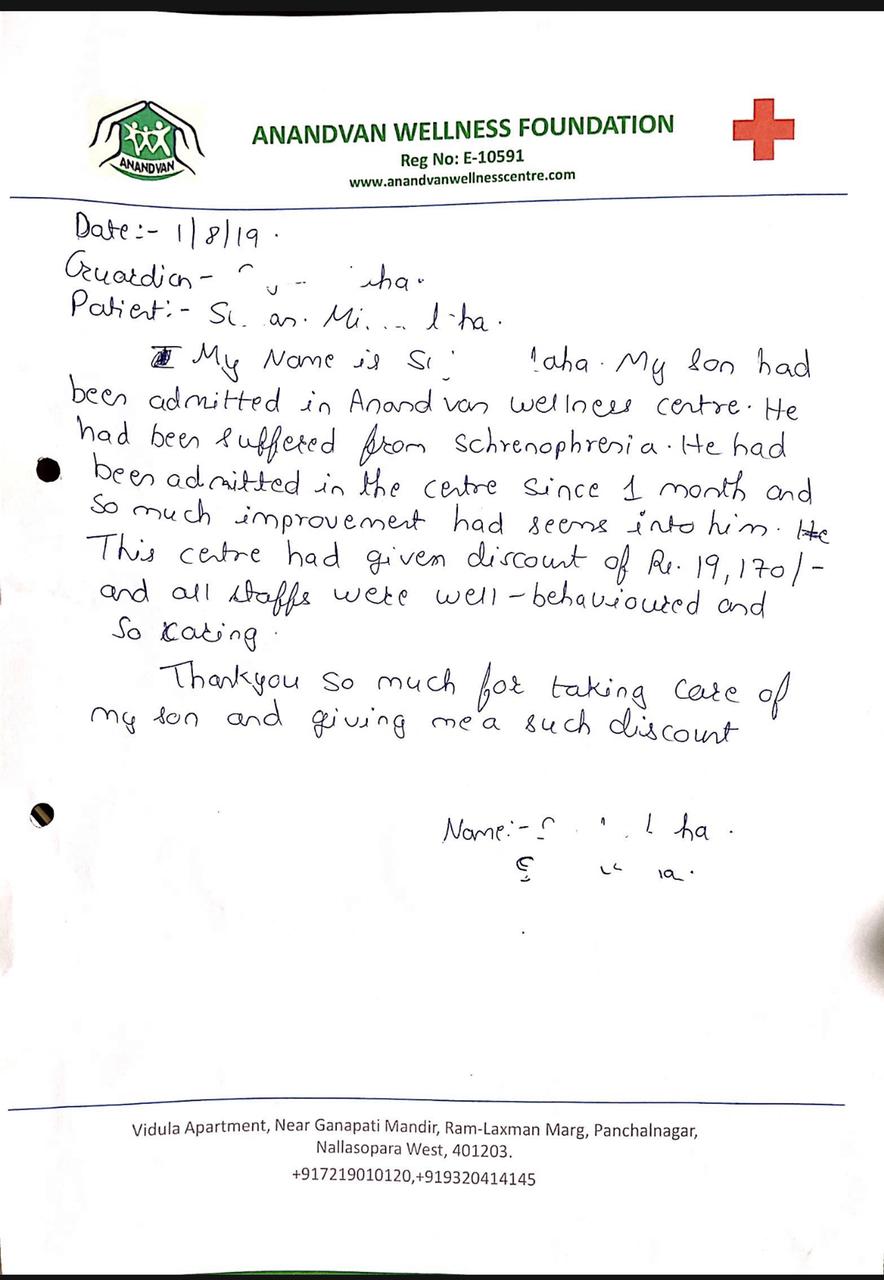 ANANDVAN
ANANDVAN WELLNESS FOUNDATION
Reg No: E-10591
www.anandvanwellnesscentre.com
Date:- 1/8/19.
Guardian -
Patient:-
My Name is My son had
been admitted in Anandvan wellness centre. He
had been suffered from Schrenophrenia. He had
been admitted in the centre since 1 month and
so much improvement had seems into him. He
This centre had given discount of Rs. 19,170/-
and all staffs were well-behavioured and
so caring.
Thankyou so much for taking care of
my son and giving me a such discount
Name:-
Vidula Apartment, Near Ganapati Mandir, Ram-Laxman Marg, Panchalnagar,
Nallasopara West, 401203.
+917219010120,+919320414145